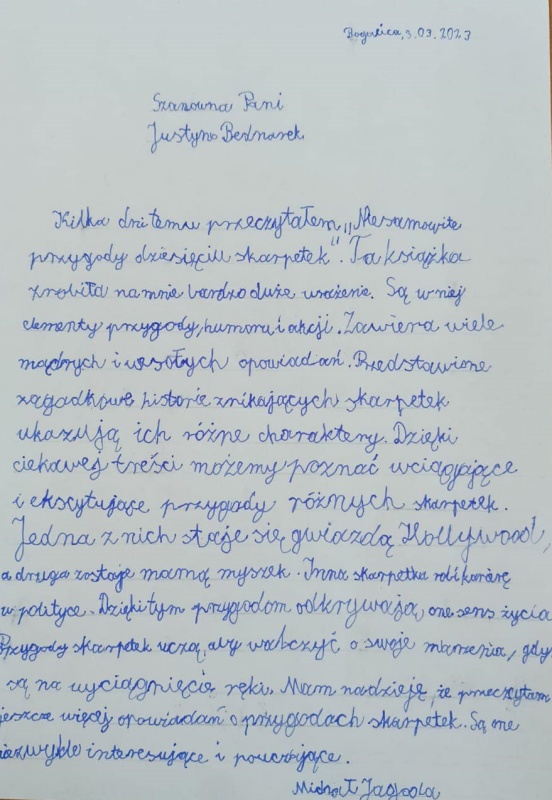 Bogucica, 3.03.2023
Szanowna Pani
Justyno Bednarek
Kilka dni temu przeczytałem „Niesamowite
przygody dziesięciu skarpetek". Ta książka
zrobiła na mnie bardzo duże wrażenie. Są w niej
elementy przygody, humoru i akcji. Zawiera wiele
mądrych i wesołych opowiadań. Przedstawione
zagadkowe historie znikających skarpetek
ukazują ich różne charaktery. Dzięki
ciekawej treści możemy poznać wciągające
i ekscytujące przygody różnych skarpetek.
Jedna z nich staje się gwiazdą Hollywood,
a druga zostaje mamą myszek. Inna skarpetka robi karierę
w polityce. Dzięki tym przygodom odkrywają one sens życia
Przygody skarpetek uczą, aby walczyć o swoje marzenia, gdy
są na wyciągnięcie ręki. Mam nadzieję, że przeczytam
jeszcze więcej opowiadań o przygodach skarpetek. Są one
niezwykle interesujące i pouczające.
Michał